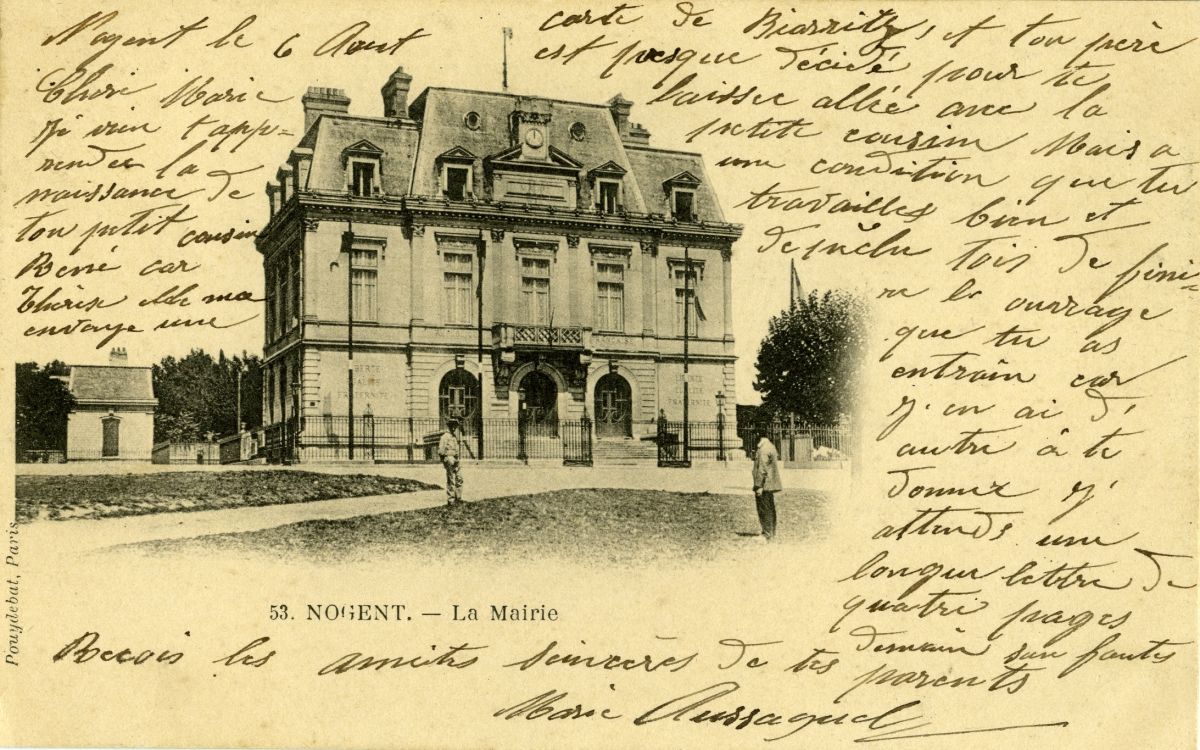 Nogent le 6 Aout
Chère Marie
J'i vien t'app=
rendre la
naissance de
ton petit cousin
René car
Thérèse elle ma
envoyé une
carte de Biarritz, et ton père
est presque décidé pour te
laisser allée avec la
petite cousine Mais a
une condition que tu
travailles bien et
dépêche tois de fini-
re le ouvrage
que tu as
entrain car
j'en ai d'
autre à te
donnez j'
attends une
longue lettre de
quatre pages
demain san fautes
Recois les amités sincères de tes parents
Marie Aussaguel
LIBERTE
EGALITE
FRATERNITE
LIBERTE
FRATERNITE
53. NOGENT. — La Mairie
Pouydebat, Paris